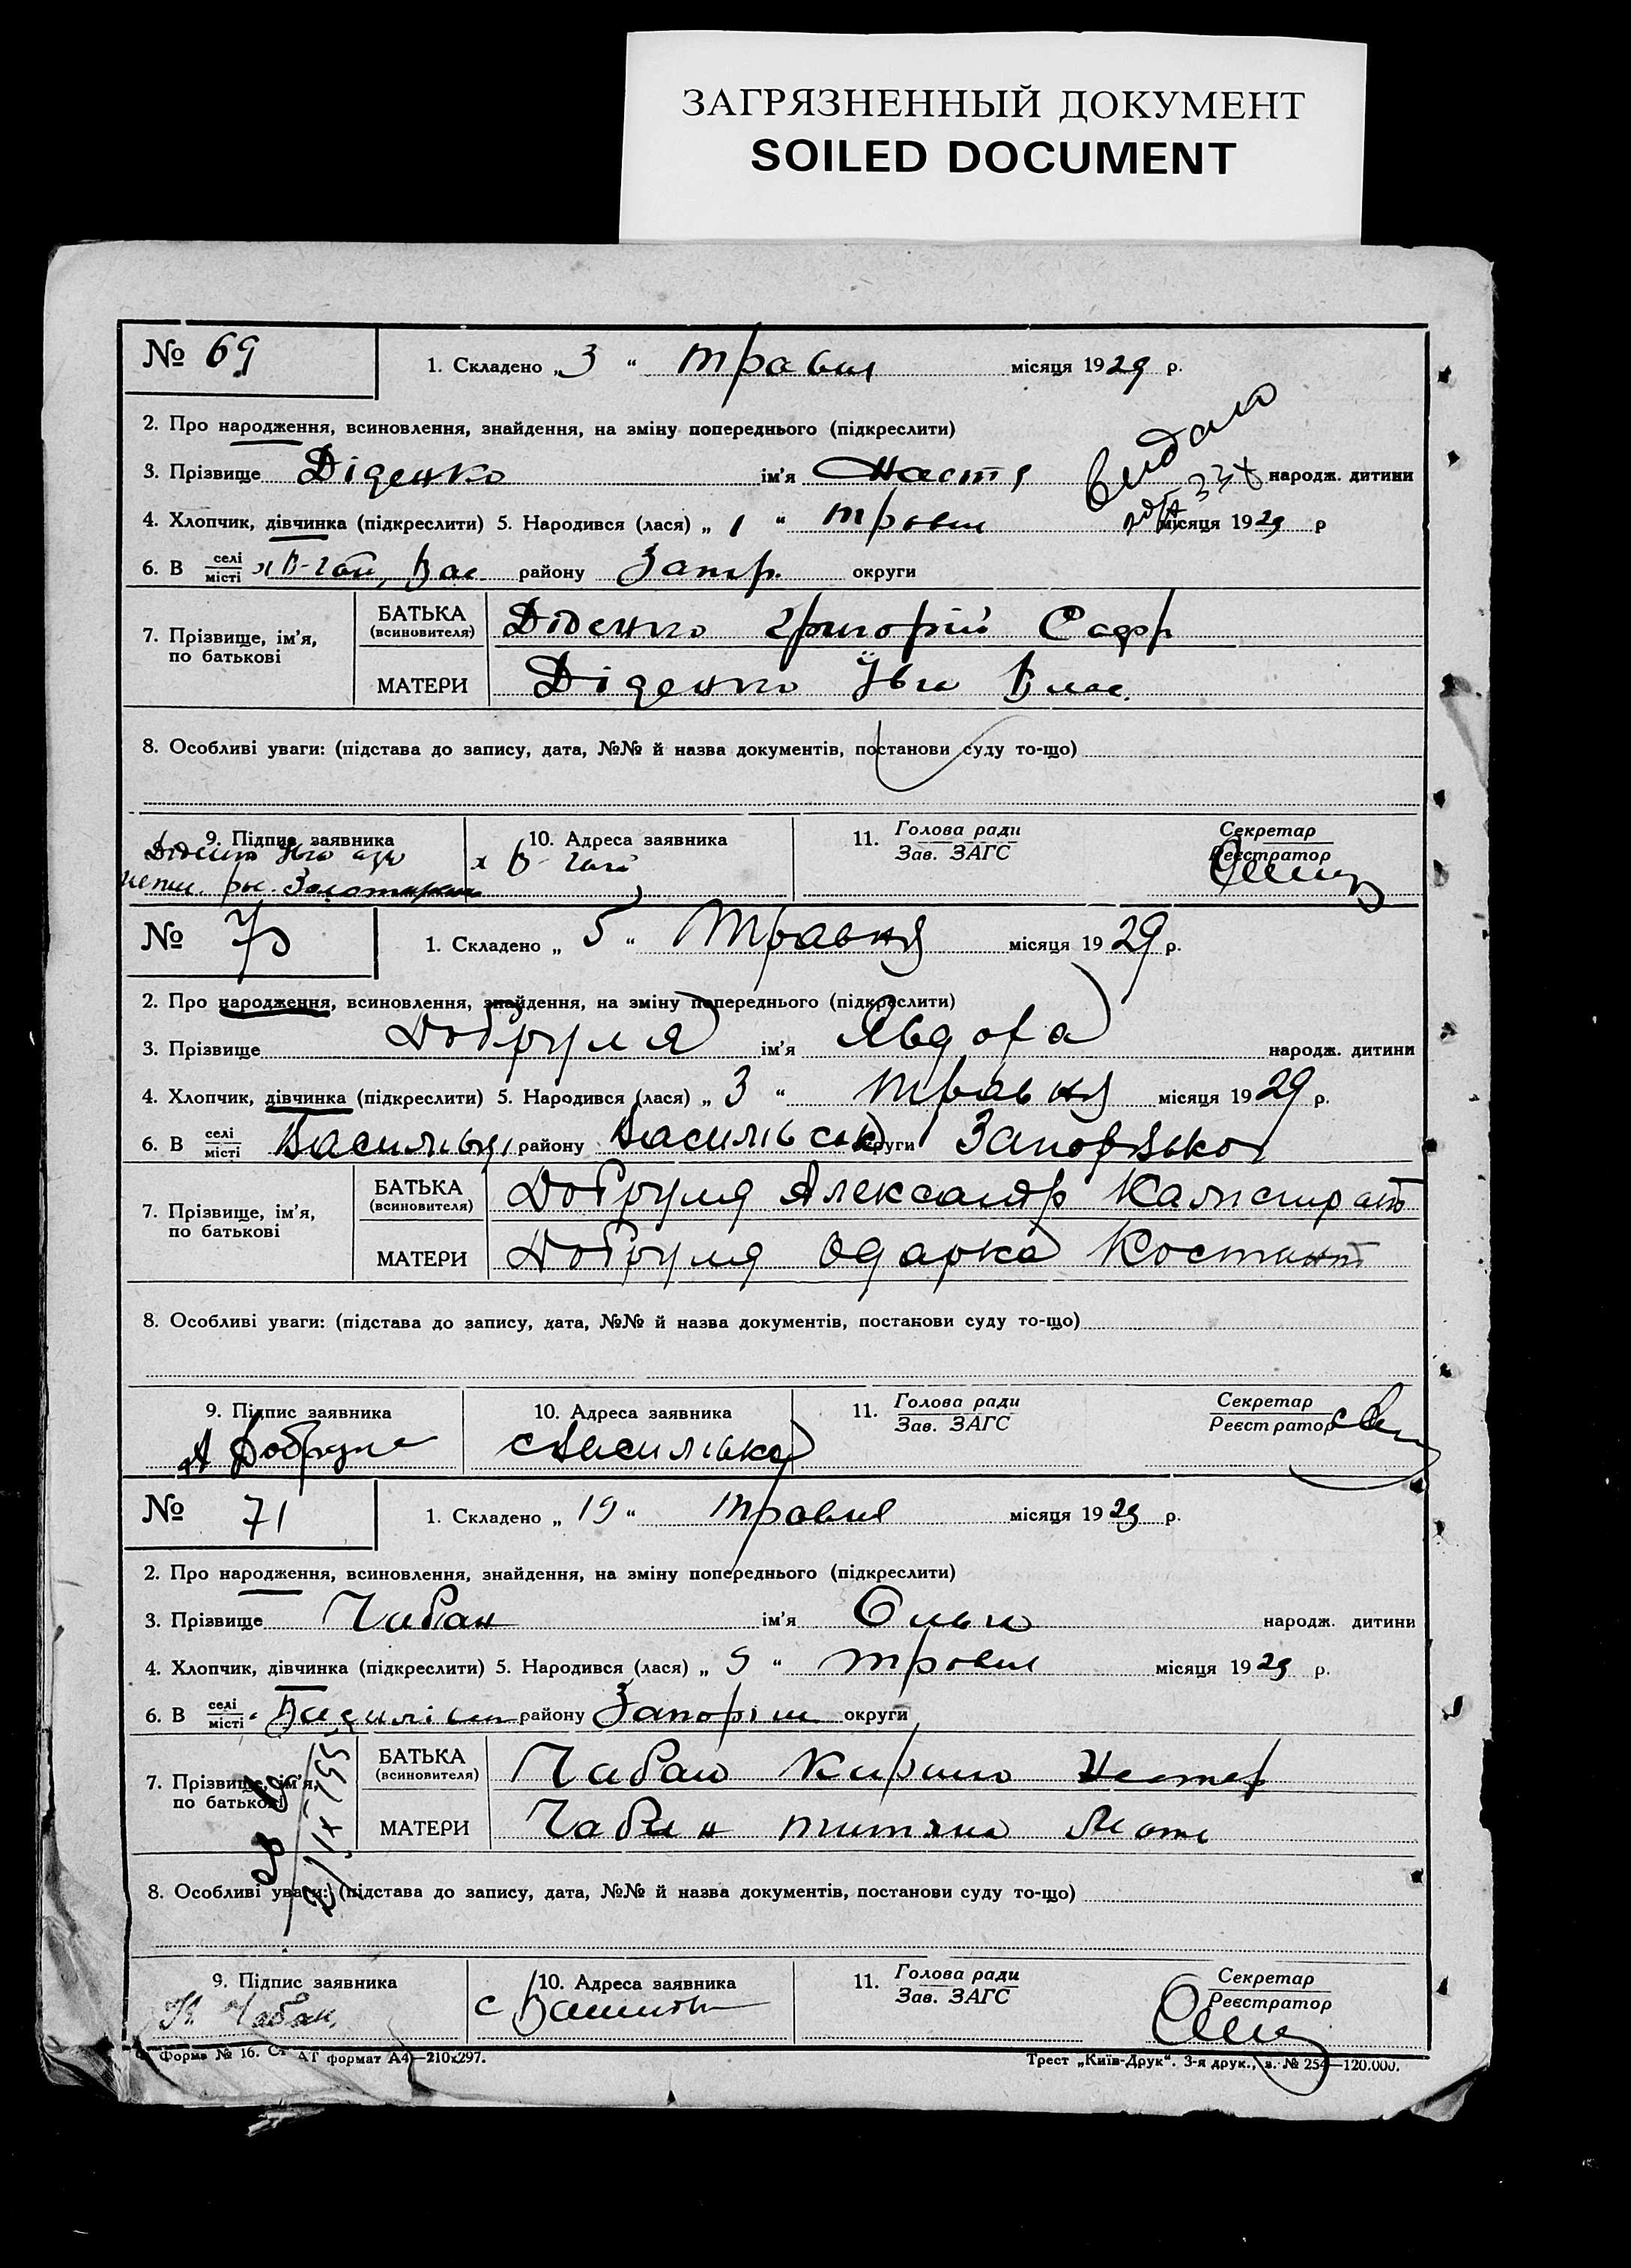 ЗАГРЯЗНЕННЫЙ ДОКУМЕНТ
SOILED DOCUMENT
№ 69
1. Складено „3“ травня місяця 1929 р.
2. Про народження, всиновлення, знайдення, на зміну попереднього (підкреслити)
3. Прізвище Діденко ім'я Настя народж. дитини
видано
4. Хлопчик, дівчинка (підкреслити) 5. Народився (лася) „1“ травня місяця 1929 р
6. В селі/місті х В-Гай, Вас району Запор. округи
7. Прізвище, ім'я, по батькові
БАТЬКА (всиновителя) Діденко Григорій Сафр
МАТЕРИ Діденко Ївга Влас.
8. Особливі уваги: (підстава до запису, дата, №№ й назва документів, постанови суду то-що)
9. Підпис заявника
10. Адреса заявника
х В-Гай
11. Голова ради
Зав. ЗАГС
Секретар
Реєстратор
№ 70
1. Складено „5“ Травня місяця 1929 р.
2. Про народження, всиновлення, знайдення, на зміну попереднього (підкреслити)
3. Прізвище Добруля ім'я Явдоха народж. дитини
4. Хлопчик, дівчинка (підкреслити) 5. Народився (лася) „3“ травня місяця 1929 р.
6. В селі/місті району округи
7. Прізвище, ім'я, по батькові
БАТЬКА (всиновителя) Добруля Александр Калистрат
МАТЕРИ Добруля Одарка Костянт
8. Особливі уваги: (підстава до запису, дата, №№ й назва документів, постанови суду то-що)
9. Підпис заявника
А Добруля
10. Адреса заявника
с Василівка
11. Голова ради
Зав. ЗАГС
Секретар
Реєстратор
№ 71
1. Складено „19“ травня місяця 1929 р.
2. Про народження, всиновлення, знайдення, на зміну попереднього (підкреслити)
3. Прізвище Чабан ім'я Ольга народж. дитини
4. Хлопчик, дівчинка (підкреслити) 5. Народився (лася) „9“ травня місяця 1929 р.
6. В селі/місті району Запоріш округи
7. Прізвище, ім'я, по батькові
БАТЬКА (всиновителя) Чабан Кирило Нестер
МАТЕРИ Чабан Титяна
8. Особливі уваги: (підстава до запису, дата, №№ й назва документів, постанови суду то-що)
9. Підпис заявника
К. Чабан.
10. Адреса заявника
11. Голова ради
Зав. ЗАГС
Секретар
Реєстратор
Форма № 16. Ст АТ формат А4—210х297.
Трест „Київ-Друк“. 3-я друк., з. № 254—120.000.